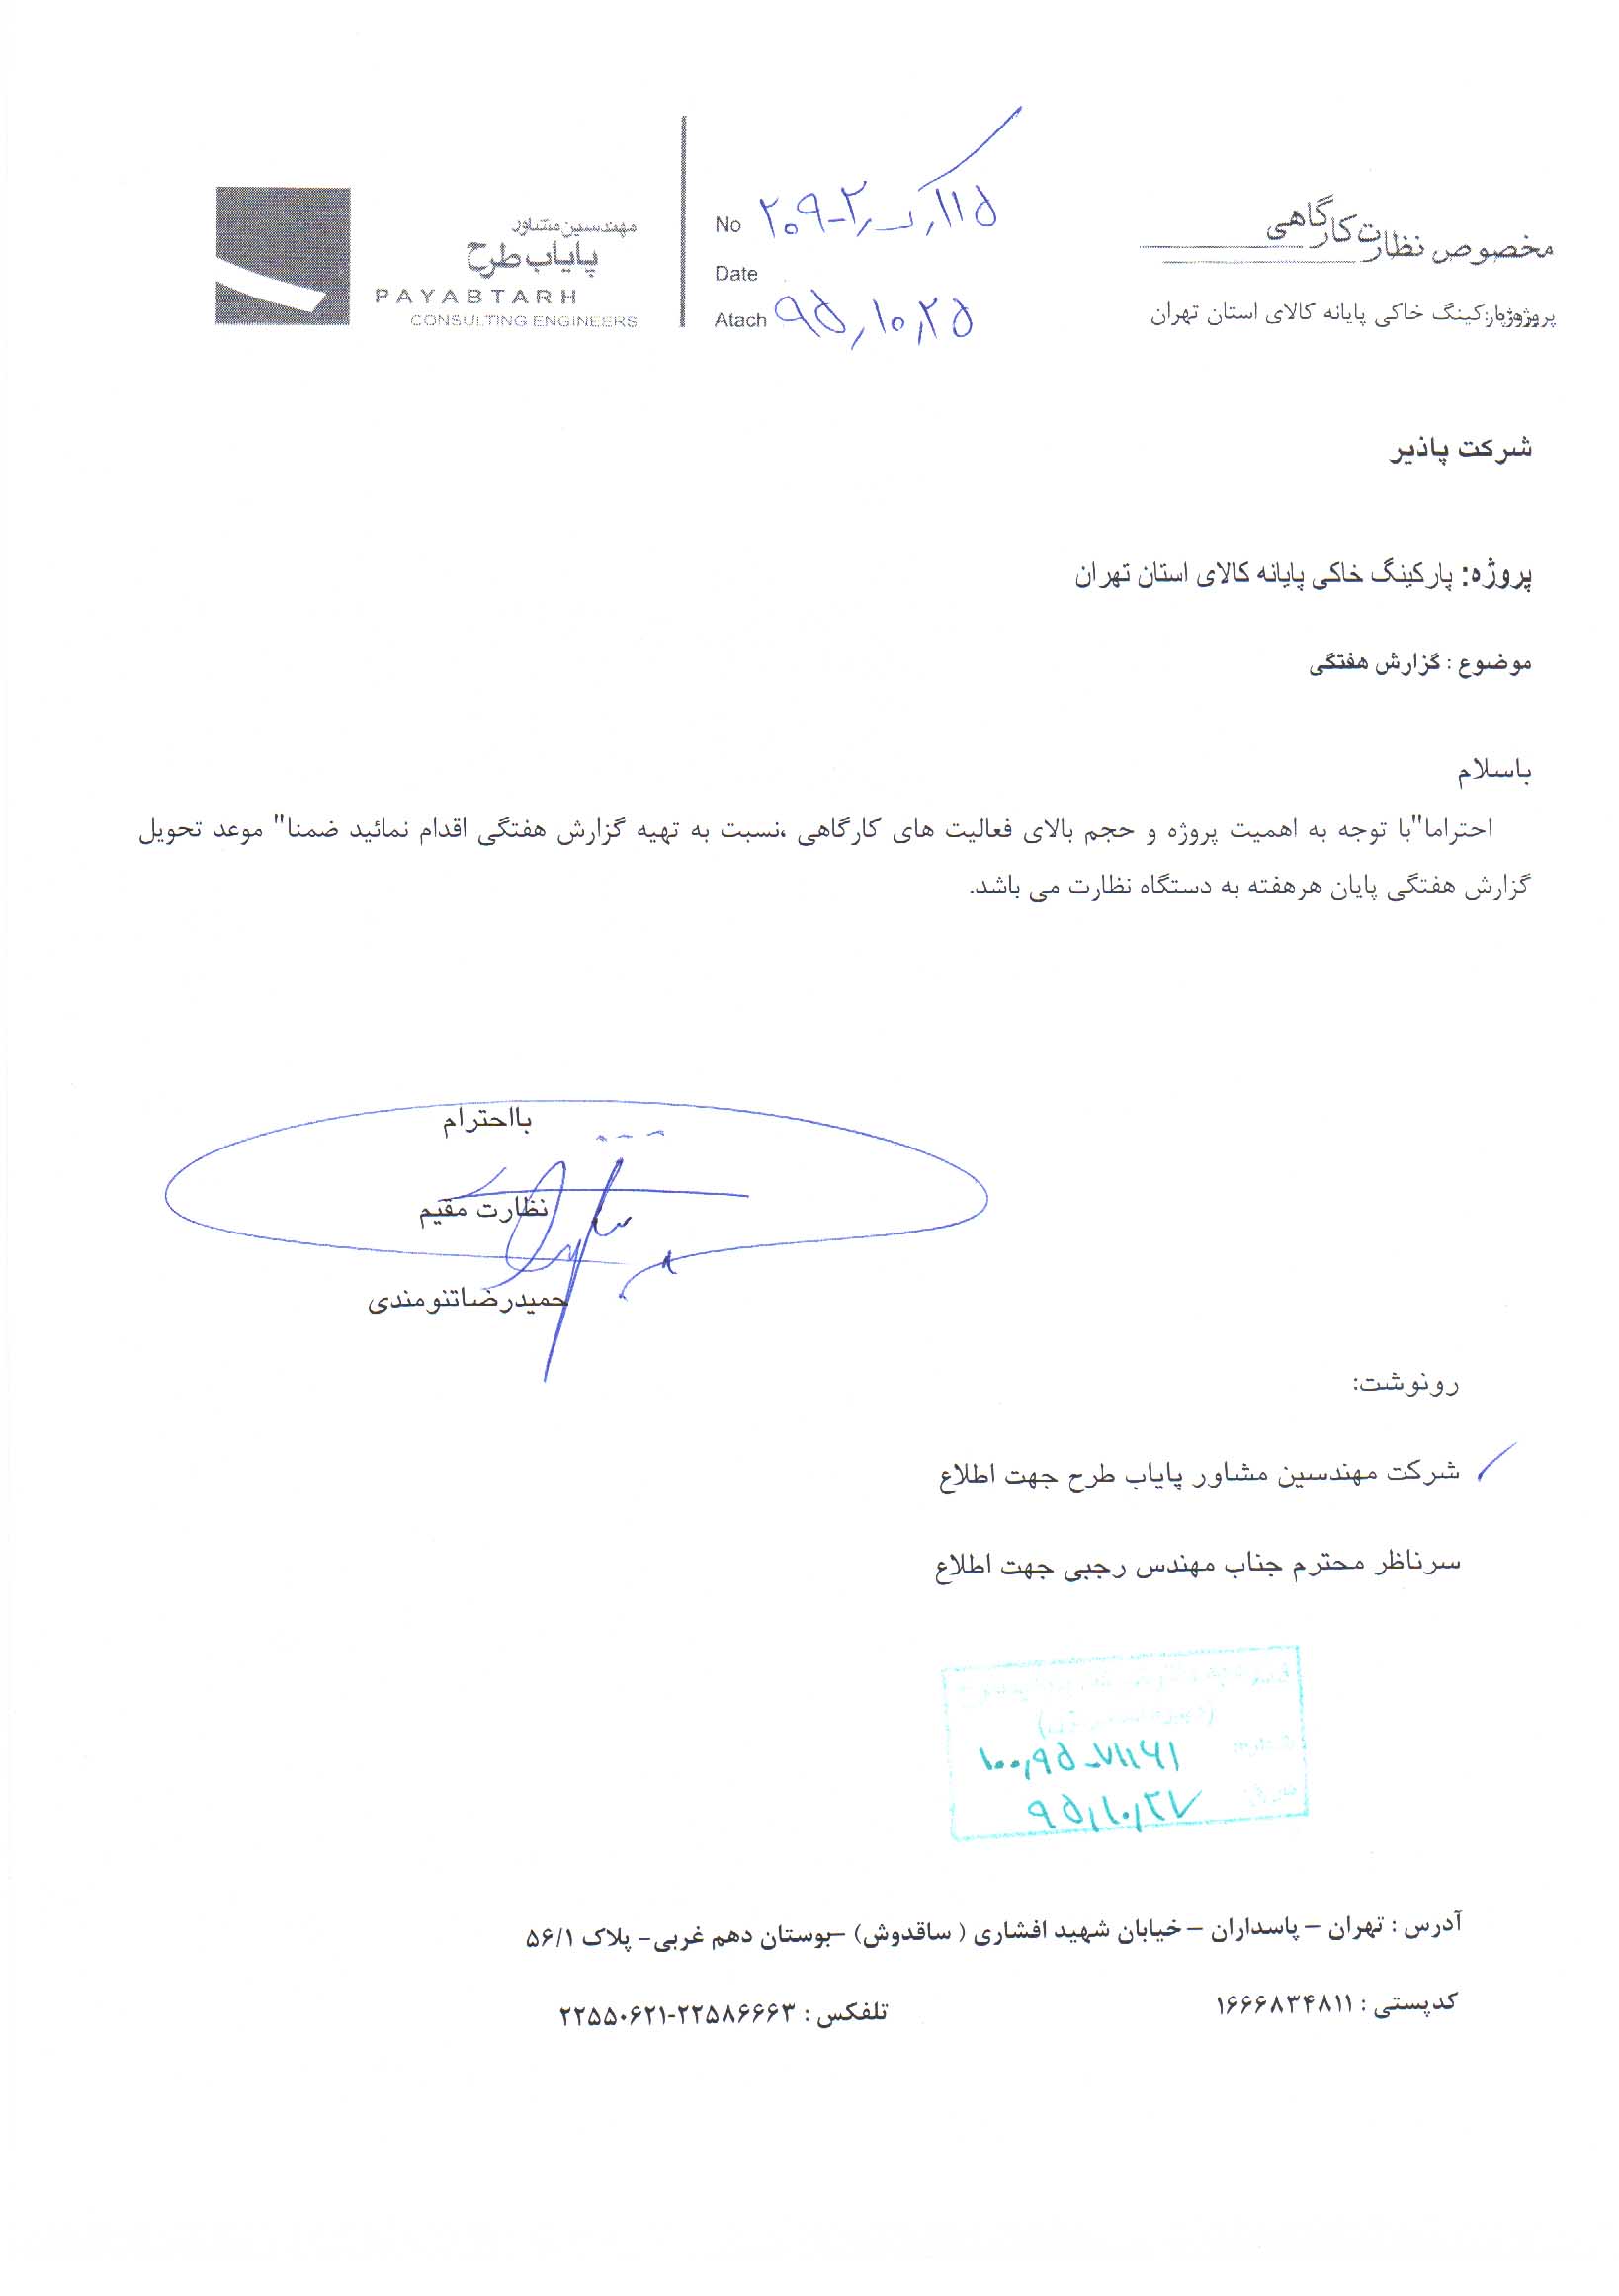 مخصوص نظارت کارگاهی
پروژه: پارکینگ خاکی پایانه کالای استان تهران
No
Date
Atach ۹۵,۱۰,۲۵
مهندسین مشاور
پایاب طرح
PAYABTARH
CONSULTING ENGINEERS
شرکت پاذیر
پروژه: پارکینگ خاکی پایانه کالای استان تهران
موضوع : گزارش هفتگی
باسلام
احتراما"با توجه به اهمیت پروژه و حجم بالای فعالیت های کارگاهی ،نسبت به تهیه گزارش هفتگی اقدام نمائید ضمنا" موعد تحویل
گزارش هفتگی پایان هرهفته به دستگاه نظارت می باشد.
بااحترام
نظارت مقیم
حمیدرضاتنومندی
رونوشت:
شرکت مهندسین مشاور پایاب طرح جهت اطلاع
سرناظر محترم جناب مهندس رجبی جهت اطلاع
آدرس : تهران – پاسداران – خیابان شهید افشاری ( ساقدوش) –بوستان دهم غربی- پلاک ۵۶/۱
کدپستی : ۱۶۶۶۸۳۴۸۱۱
تلفکس : ۲۲۵۸۶۶۶۳-۲۲۵۵۰۶۲۱